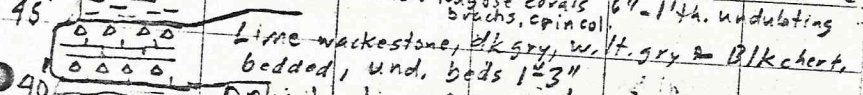 rugose corals 6"-1' th. undulating
45 brachs, crincol.
Lime wackestone, dk gry, w. lt. gry & Blk chert,
bedded, und. beds 1"-3"
40